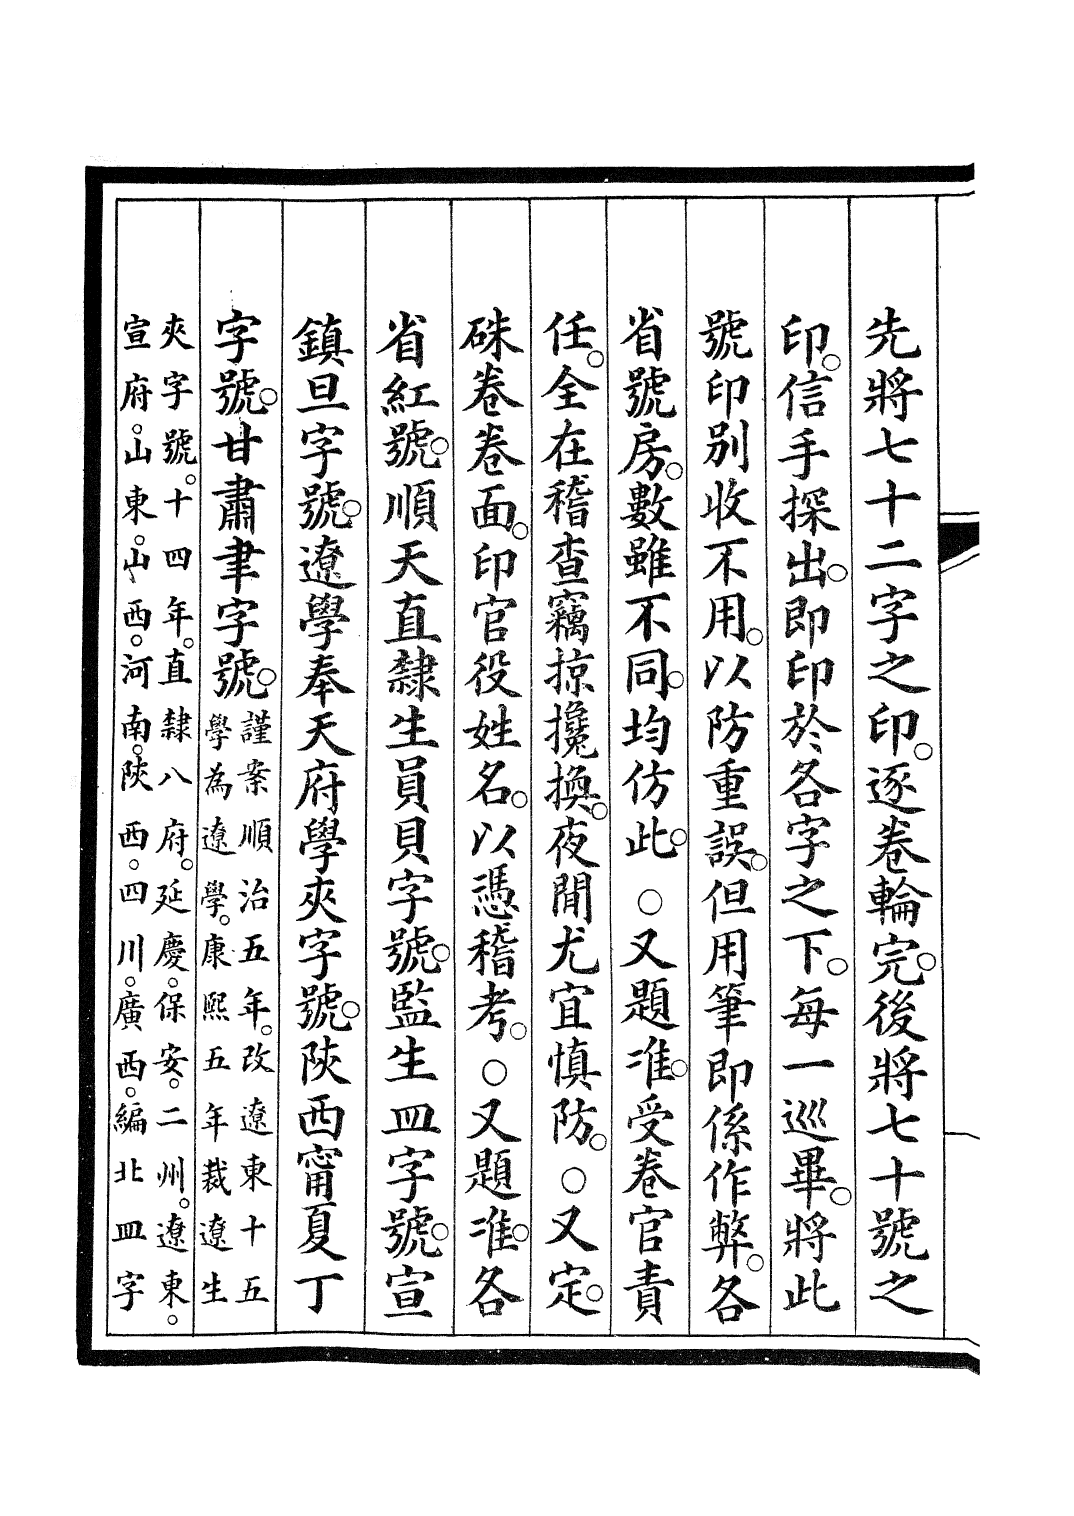 先將七十二字之印。逐卷輪完。後將七十號之
印。信手探出。即印於各字之下。每一巡畢。將此
號印別收不用。以防重誤。但用筆即係作弊。各
省號房。數雖不同。均仿此。○又題准。受卷官責
任。全在稽查竊掠攙換。夜閒尤宜慎防。○又定。
硃卷卷面。印官役姓名。以憑稽考。○又題准。各
省紅號。順天直隸生員貝字號。監生皿字號。宣
鎮旦字號。遼學奉天府學夾字號。陝西甯夏丁
字號。甘肅聿字號。
謹案順治五年。改遼東十五
學為遼學。康熙五年裁遼生
夾字號。十四年。直隸八府。延慶。保安。二州。遼東。
宣府。山東。山西。河南。陝西。四川。廣西。編北皿字